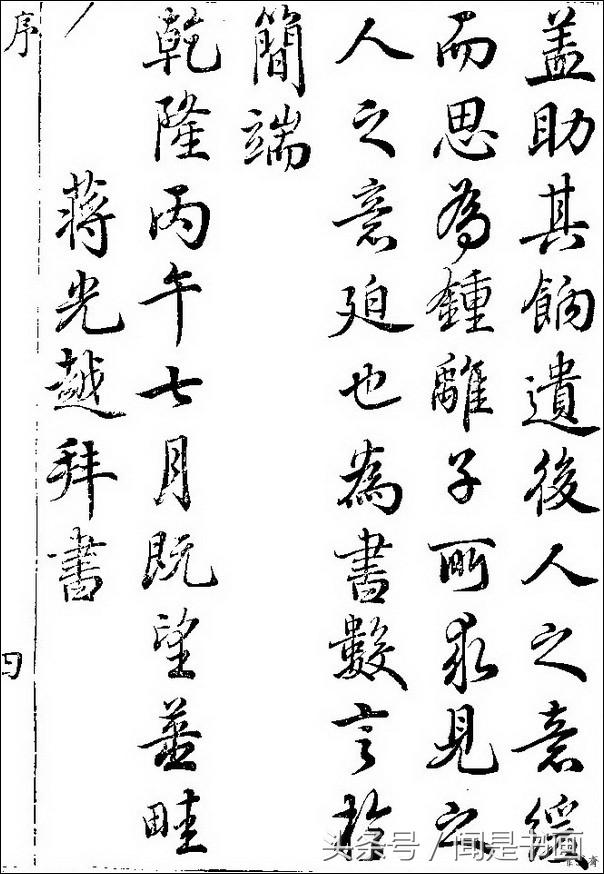 盖助其餉遺後人之意緩
而思為鍾離子所求見之
人之意廹也為書數言於
簡端
乾隆丙午七月既望薑畦
蔣光越拜書
序
头条号 / 闻是书画